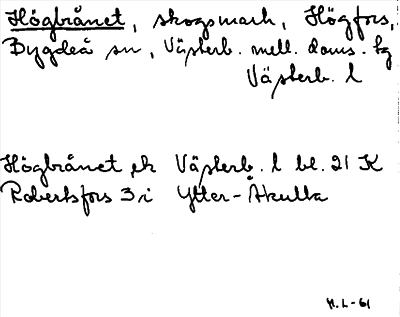 Högbrånet, skogsmark, Högfors,
Bygdeå sn, Västerb. mell. doms. tg
Västerb. l
Högbrånet ek Västerb. l bl. 21 K
Robertsfors 3 i Ytter-Åkulla
H.L-61